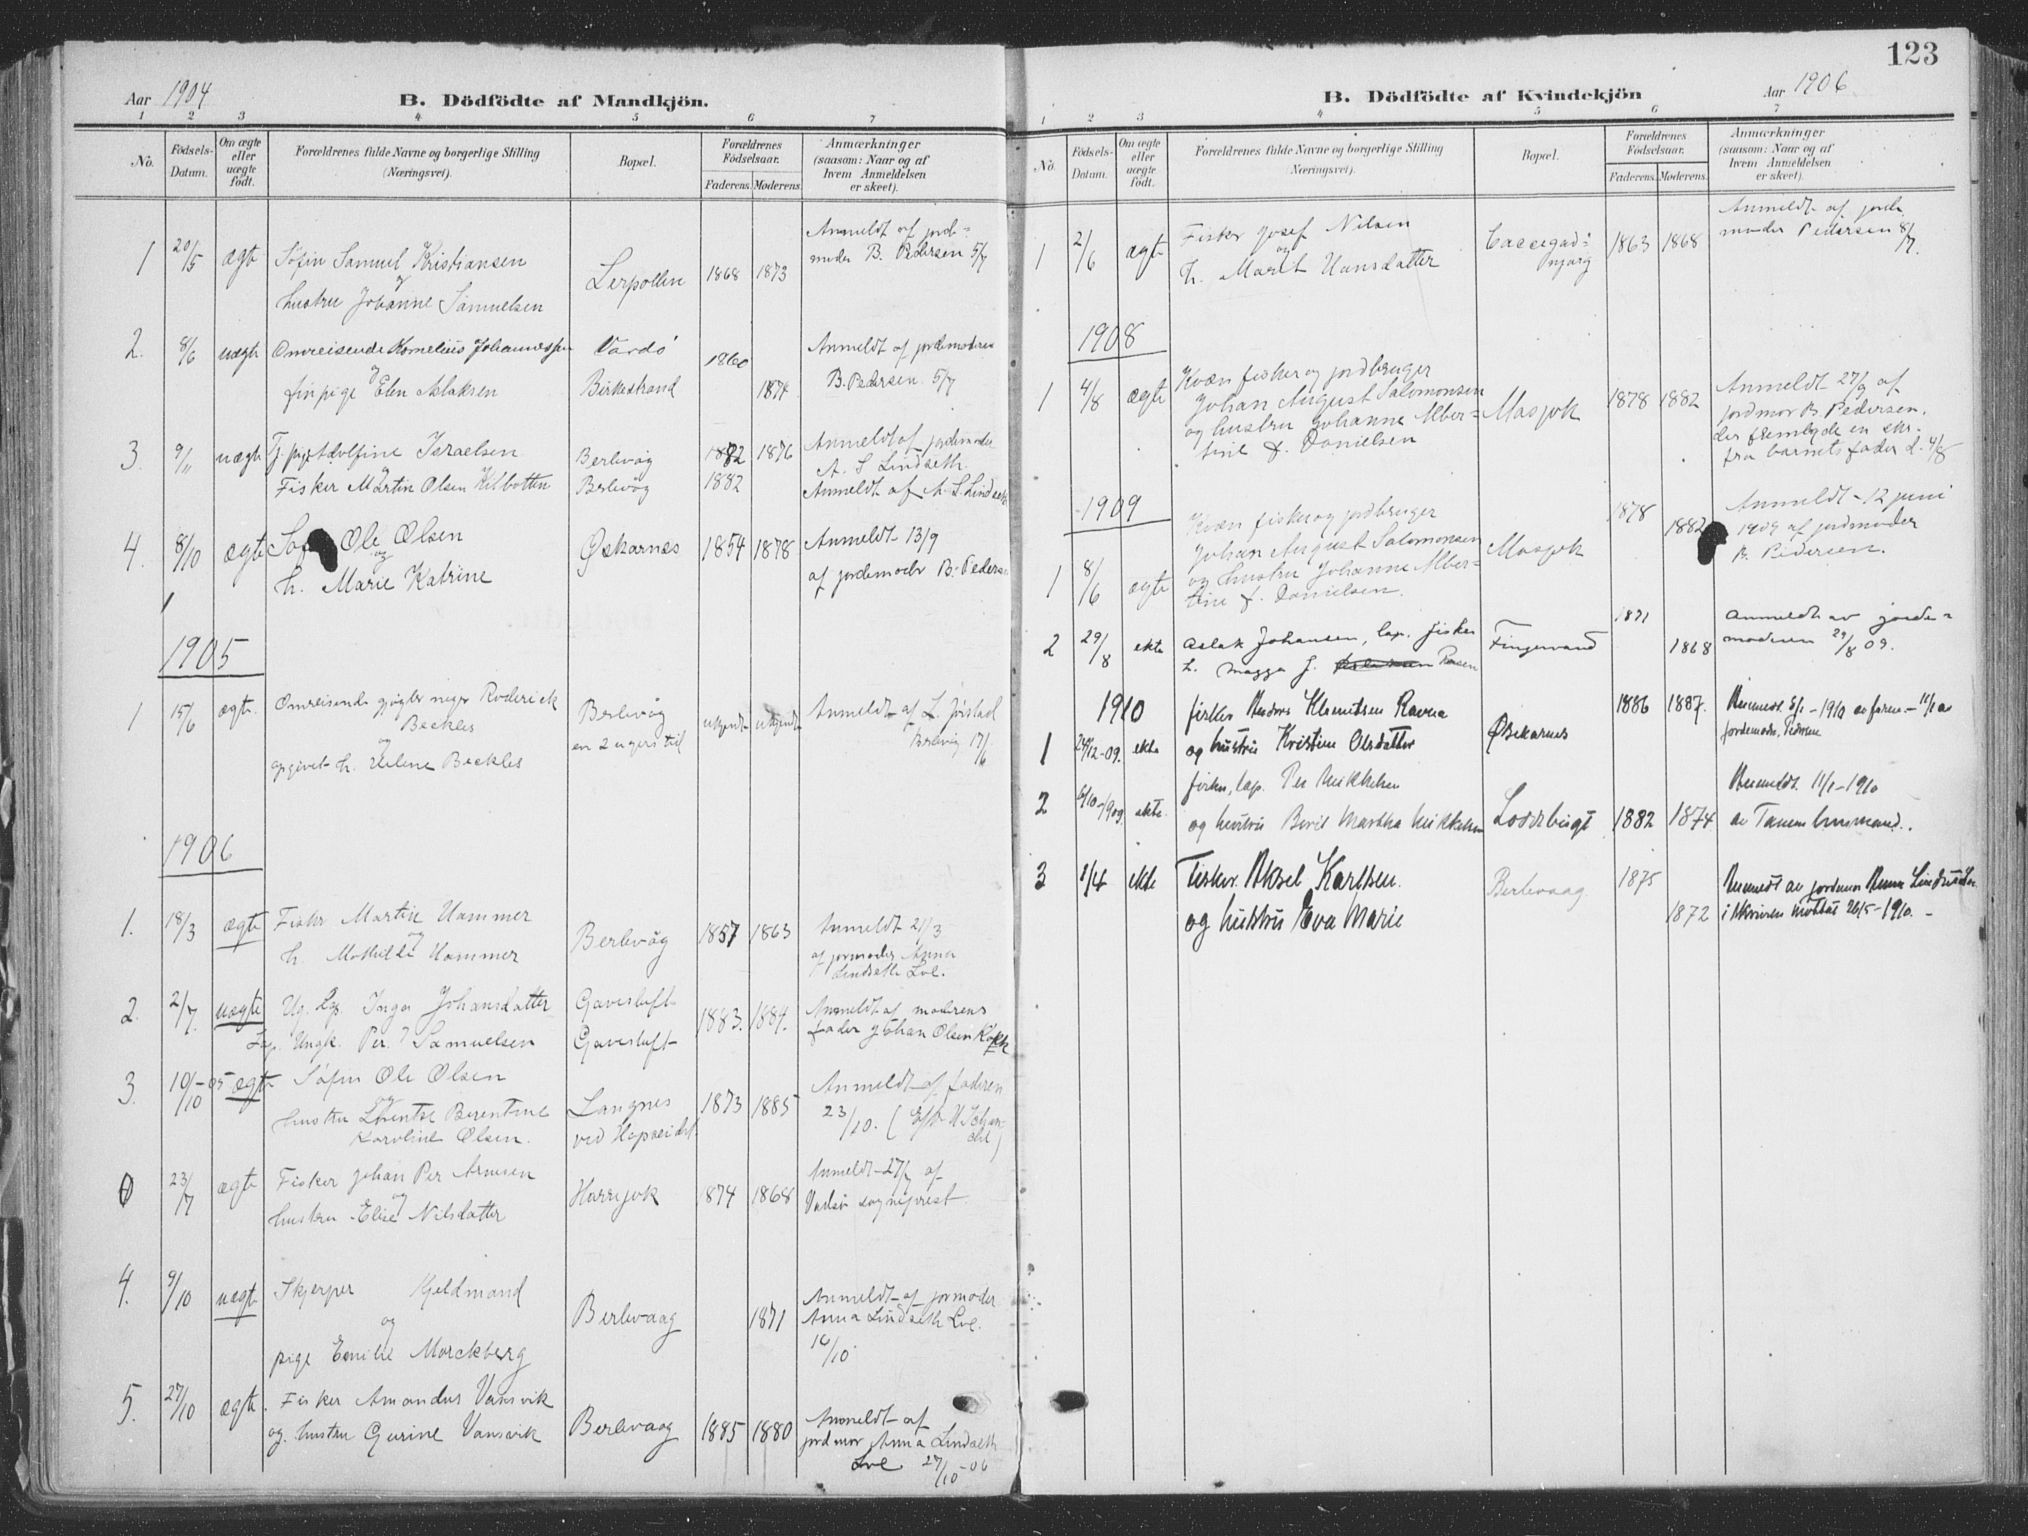 Aar 1904
B. Dödfödte af Mandkjön.
1 2 3 4 5 6 7
No.
Födsels-Datum.
Om ægte eller uægte födt.
Forældrenes fulde Navne og borgerlige Stilling (Næringsvei).
Bopæl.
Forældrenes Födselsaar.
Faderens. Moderens.
Anmærkninger (saasom: Naar og af hvem Anmeldelsen er skeet).
1 20/5 ægte Søfin Samuel Kristiansen
og
hustru Johanne Samuelsen
Lerpollen 1868 1873
Anmeldt af jord-
moder B. Pedersen 5/7
2. 8/6 uægte Omreisende Kornelius Johannessen
og
finpige Elen Aslaksen
Vardö
Birkestrand
1860
1874
Anmeldt af jordemoderen
B. Pedersen. 5/7
3. 9/11 uægte Tj. pige Adolfine Israelsen
Fisker Martin Olsen Kilbotten
Berlevåg
Berlevåg
1882 1876
1882
Anmeldt af jordemoder
A. S. Lindseth.
Anmeldt af A. S. Lindseth
4. 8/10 ægte Ole Olsen
og
h. Marie Katrine
Øskarnes 1854 1878
Anmeldt 13/9
af jordemoder B. Pedersen
1905
1 15/6 ægte. Omreisende gjøgler neger Roderick
Beckles
og
opgivet h. Helene Beckles
Berlevåg
en 2 ugers tid
ukjendt ukjendt
Anmeldt af L. Jöstad
Berlevåg 17/6
1906
1. 18/3 ægte Fisker Martin Hammer
og
h. Mathilde Hammer
Berlevåg 1857 1863
Anmeldt 21/3
af jormoder Anna
Lindseth Lvl.
2. 2/7. uægte Ug. Lp. Inga Johansdatter
Lap. Ungk. Per Samuelsen
Gavesluft
Gavesluft
1883. 1884.
Anmeldt af moderens
fader Johan Olsen
3. 10/10-05 ægte Søfin Ole Olsen
og
hustru Lorentse Berentine
Karoline Olsen.
Langnes
ved Hopseidet
1873 1885
Anmeldt af faderen
23/10.
0 23/7 ægte Fisker Johan Per Arnesen
og
hustru Elise Nilsdatter
Harrejok 1874 1868
Anmeldt 27/7 af
Vadsø sogneprest.
4. 9/10 uægte Skjerper Kjeldmand
og
pige Emilie Morckberg
Berlevaag 1871
Anmeldt af jormoder
Anna Lindseth Lvl.
10/10.
5. 27/10 ægte. Fisker Amandus Vansvik
og hustru Gurine Vansvik
Berlevaag 1885 1880
Anmeldt af
jordmor Anna Lindseth
Lvl 27/10-06
123
B. Dödfödte af Kvindekjön
Aar 1906
1 2 3 4 5 6 7
No.
Födsels-Datum.
Om ægte eller uægte födt.
Forældrenes fulde Navne og borgerlige Stilling (Næringsvei).
Bopæl.
Forældrenes Födselsaar.
Faderens. Moderens.
Anmærkninger (saasom: Naar og af hvem Anmeldelsen er skeet).
1 2/6 ægte Fisker Josef Nilsen
og
h. Marit Hansdatter
njarg
1863 1868
Anmeldt af jorde
moder Pedersen 8/7.
1908
1 4/8 ægte Kvæn fisker og jordbruger
Johan August Salomonsen
og hustru Johanne Alber-
tine f. Danielsen
Masjok 1878 1882
Anmeldt 27/9 af
jordmor B. Pedersen.
der fremlagde en skr.
fra barnets fader d. 4/8
1909
1 8/6 ægte Kvæn fisker og jordbruger
Johan August Salomonsen
og hustru Johanne Alber-
tine f. Danielsen.
Masjok
1878
1882
Anmeldt 12 juni
1909 af jordmoder
B. Pedersen.
2 29/8 ekte Aslak Johansen, lap. fisker
h. Magga J.
Fingervand
1871
1868
Anmeldt av jorde-
moderen 29/8 09.
1910
1 24/12-09. ekte fisker Anders Klemetsen Ravna
og hustru Kristine Olsdatter
Øskarnes
1886 1887.
Anmeldt 8/1-1910 av faren - 11/1 av
jordemoder Pedersen
2 6/10-1909. ekte fisker, lap. Per Mikkelsen
og hustru Berit Martha Mikkelsen
Loddebugt 1882 1874
Anmeldt 11/1-1910
av Tanem lensmand.
3 1/4 ekte Fisker Aksel Karlsen.
og hustru Eva Marie
Berlevaag
1875
1872
Anmeldt av jordemor Anna Lindseth
i skrivelse mottat 26/5-1910.